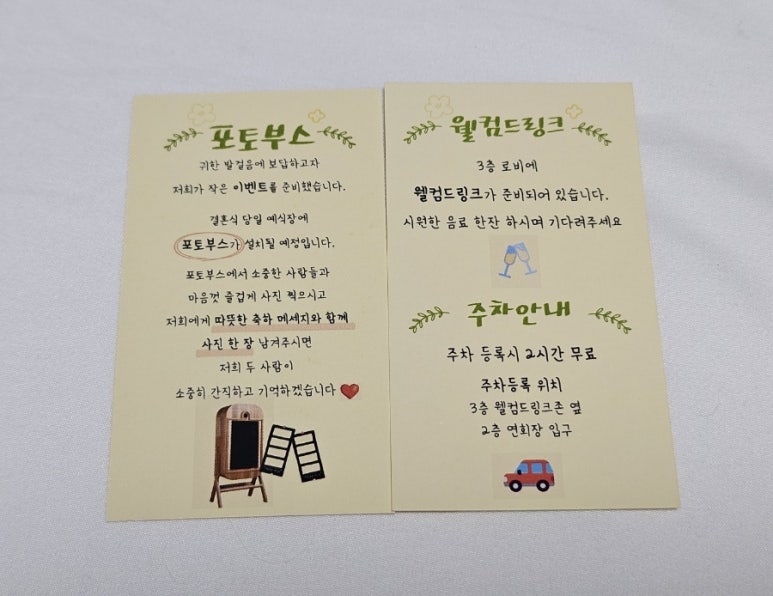 포토부스
귀한 발걸음에 보답하고자
저희가 작은 이벤트를 준비했습니다.
결혼식 당일 예식장에
포토부스가 설치될 예정입니다.
포토부스에서 소중한 사람들과
마음껏 즐겁게 사진 찍으시고
저희에게 따뜻한 축하 메세지와 함께
사진 한 장 남겨주시면
저희 두 사람이
소중히 간직하고 기억하겠습니다
웰컴드링크
3층 로비에
웰컴드링크가 준비되어 있습니다.
시원한 음료 한잔 하시며 기다려주세요
주차안내
주차 등록시 2시간 무료
주차등록 위치
3층 웰컴드링크존 옆
2층 연회장 입구